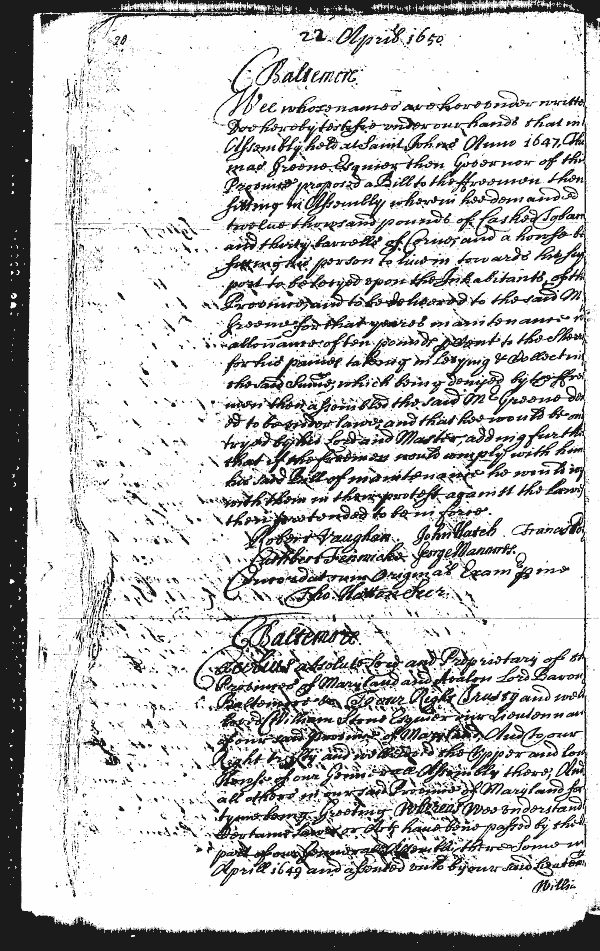 20
22 Aprill 1650
Baltemore
Wee whose names are hereunder writte
Doe hereby testifie under our hands that in
Assembly held at Saint Johns Anno 1647, Tho
mas Greene Esquier then Governor of this
Province proposed a Bill to the ffreemen then
sitting in Assembly wherein hee demanded
twelue thousand pounds of Casked Tobac
and thirty barrells of Corne, and a howse b
fitting his person to liue in towards his sup
port to be levyed upon the Inhabitants of th
Province, and to be delivered to the said Mr
Greene for that yeares maintenance
allowance of ten pounds p Cent to the Sher
for his paines takeing in Levying & Collectin
the said Sume, which being denyed by the ffree
men then assembled the said Mr Greene de
ed to be under lawe, and that hee would be
tryed by his Lord and Master, adding furth
that if the freemen would comply with him
his said Bill of maintenance he would
with them in their protest against the lawes
then pretended to be in force.
Robert Vaughan John Hatch Francis Po
Cuthbert Fenwicke George Manners.
Concordat cum Originali Exam p me
Tho: Hatton Secr.
Baltemore
Cecilius absolute Lord and Proprietary of th
Provinces of Maryland and Avalon Lord Baron
Baltemore &c To our Right Trusty and well
loved William Stone Esquier our Lieutennan
of our said Province of Maryland, And to our
Right trusty and well loved the Upper and low
Howse of our Generall Assembly there, And
all others in our said Province of Maryland for
tyme being Greeting Whereas Wee understand
Certaine lawes or Acts have bene passed by the
part of our Generall Assembly there Some in
Aprill 1649 and assented unto by our said Lieuten
Willia